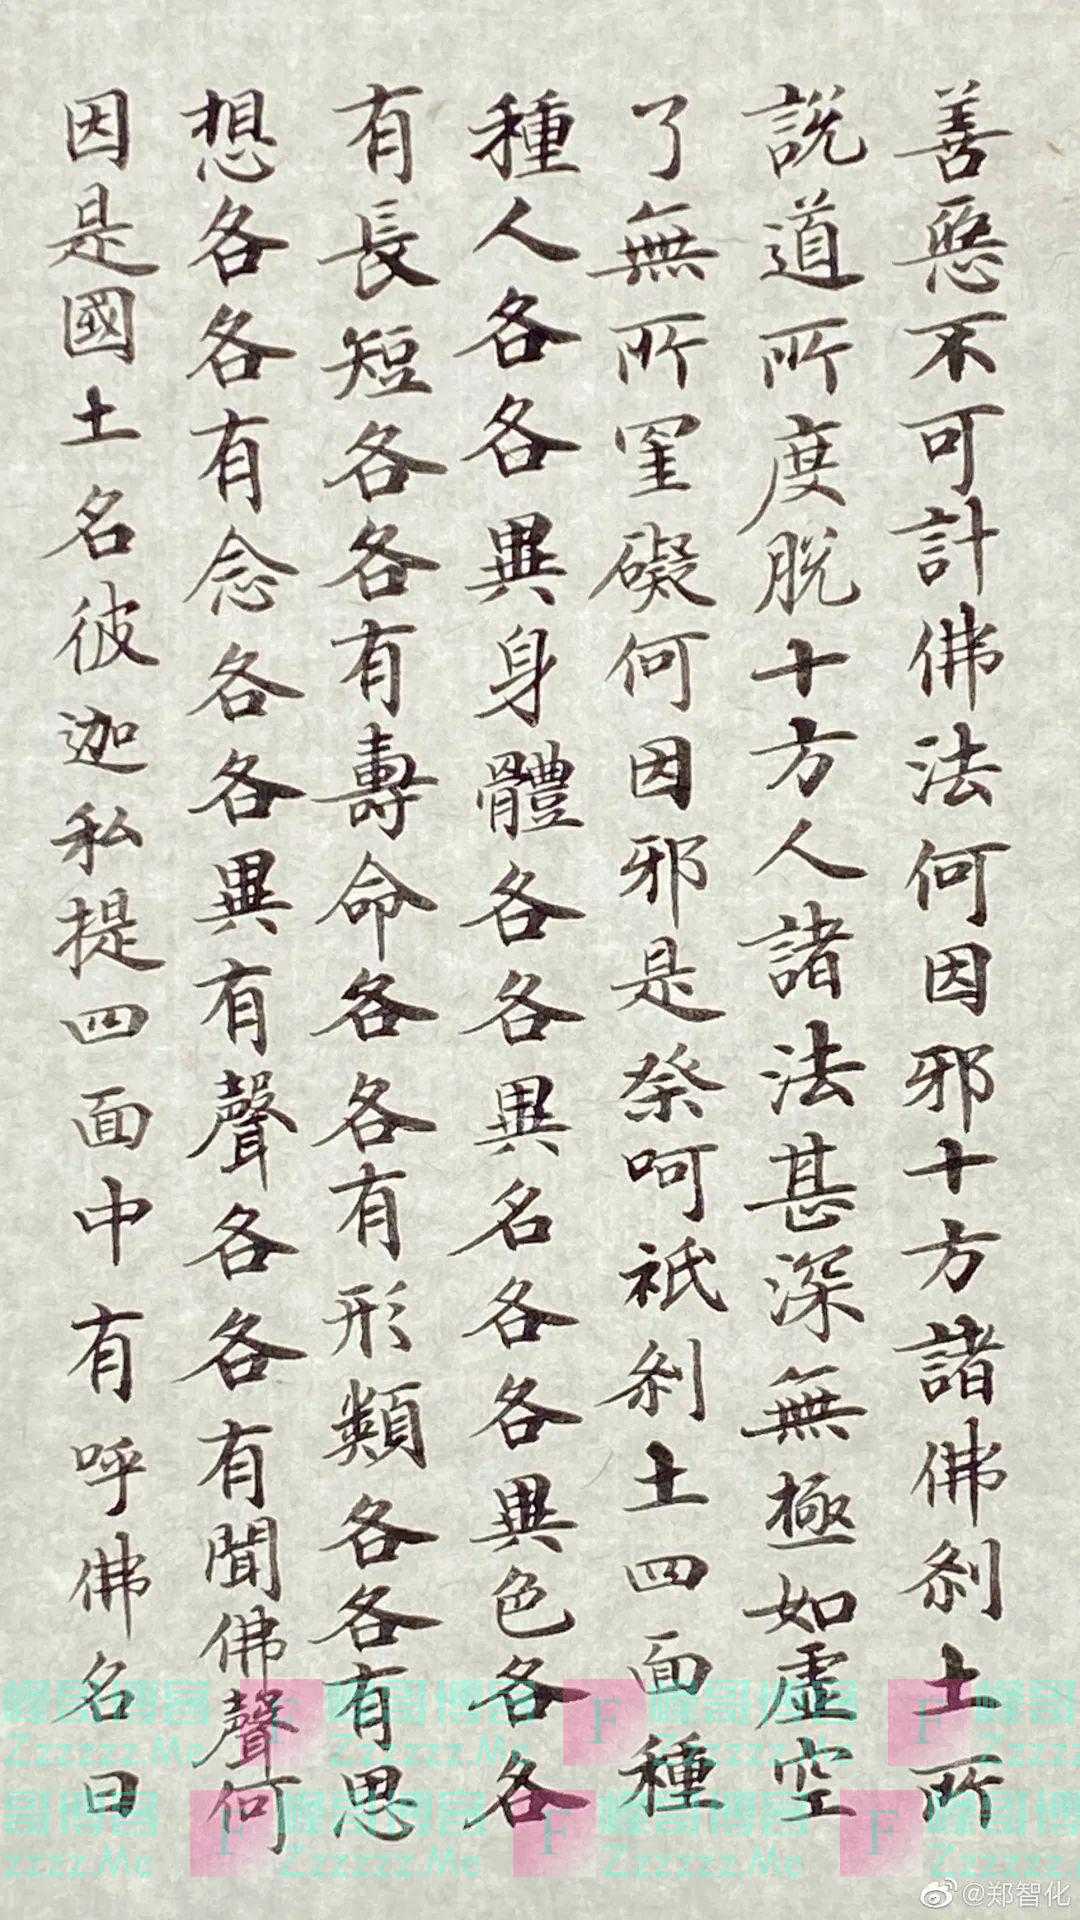 善惡不可計佛法何因邪十方諸佛剎土所
說道所度脫十方人諸法甚深無極如虛空
了無所罣礙何因邪是祭呵祇剎土四面種
種人各各異身體各各異名各各異色各各
有長短各各有壽命各各有形類各各有思
想各各有念各各異有聲各各有聞佛聲何
因是國土名彼迦私提四面中有呼佛名曰
Zzzzzz.Me
F
Zzzzzz.Me
F
Zzzzzz.Me
F
zzzzz.Me
F
Zzzzzz.Me
F
Zzzzzz.Me
F
@郑智化